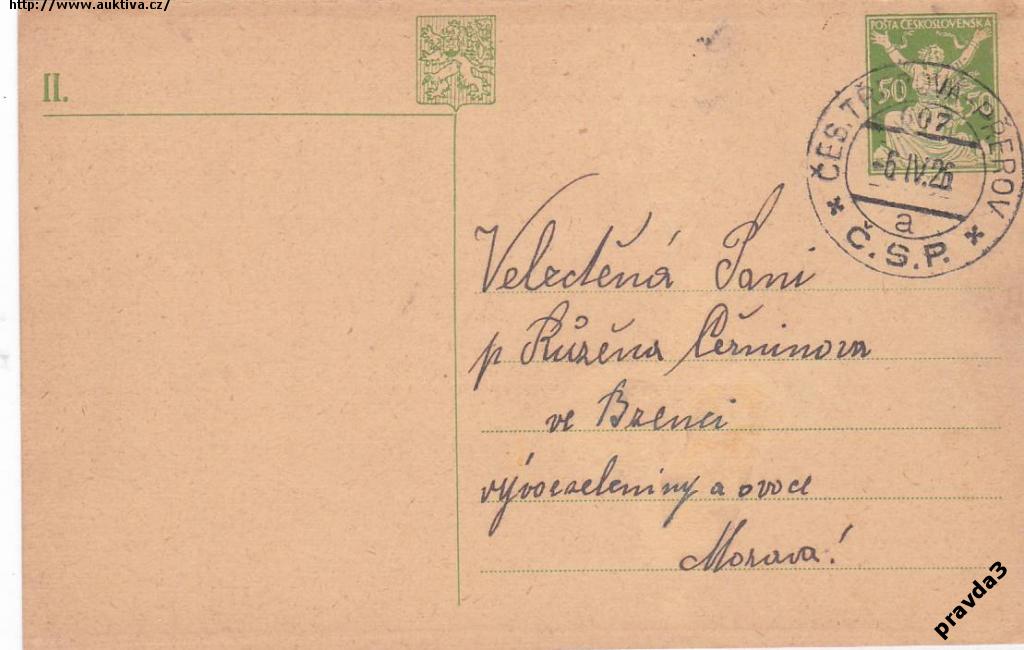 http://www.auktiva.cz/
II.
POŠTA ČESKOSLOVENSKÁ
50 50
ČES. TŘEBOVÁ-PŘEROV
407
-6.IV.26
a
Č.S.P.
Velectěná Paní
p Růžěna Černinova
ve Bzenci
vývoczeleniny a ovoce
Morava!
pravda3